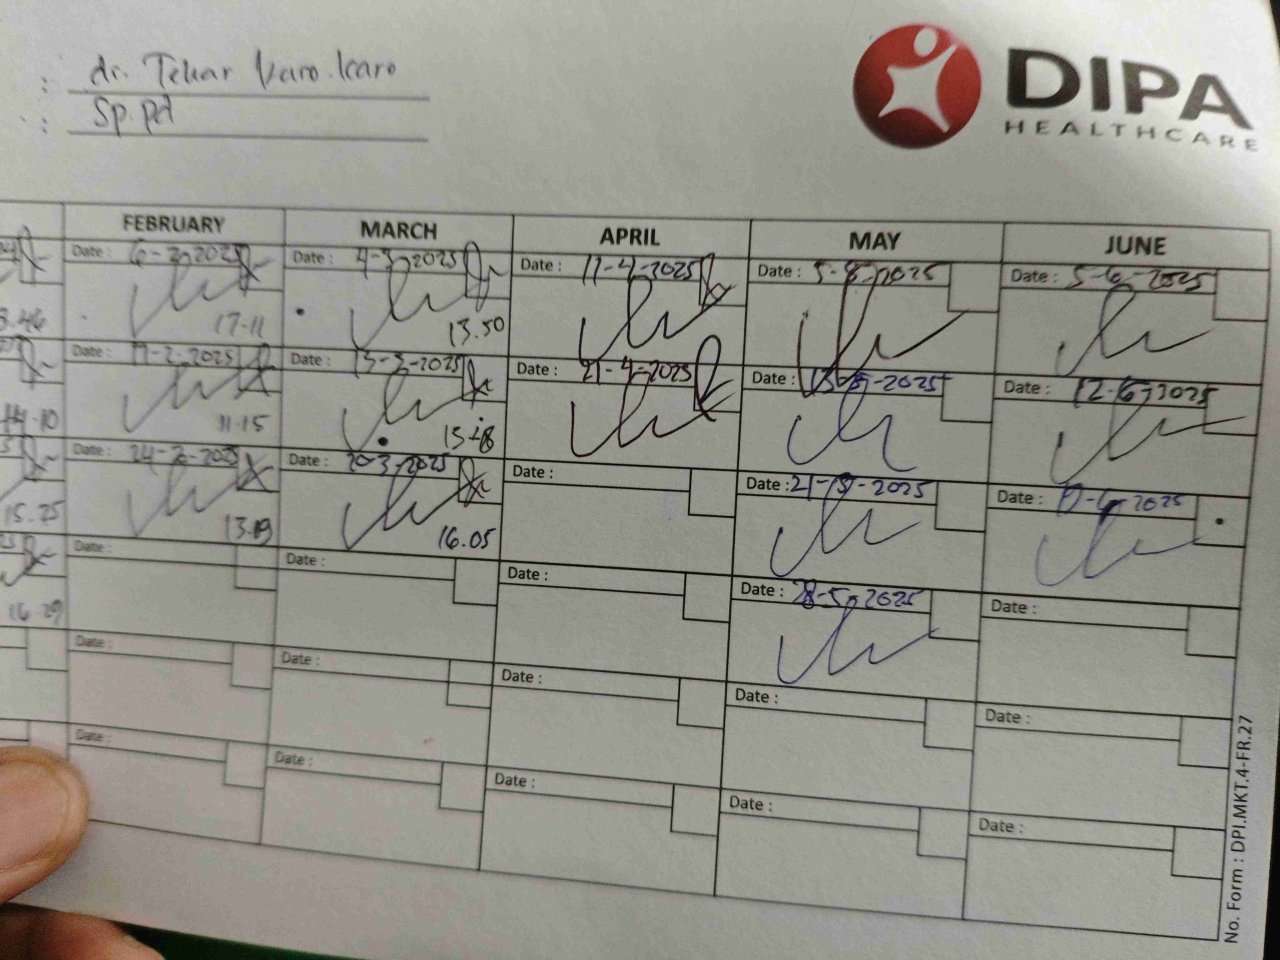 : dr. Tekar Karo.karo
: Sp.pd
DIPA
HEALTHCARE
FEBRUARY MARCH APRIL MAY JUNE
Date : 6-2-2025 Date : 4-3-2025 Date : 11-4-2025 Date : Date : 5-6-2025
17-11 13.50
Date : Date : 13-3-2025 Date : 21-4-2025 Date : Date : 12-6-2025
14-10 11-15
Date : 24-2-2025 Date : 20-3-2025 Date : Date : 21-5-2025 Date :
15.25 13.19 16.05
Date : Date : Date : Date : 28-5-2025 Date :
16.29
Date : Date : Date : Date : Date :
Date : Date : Date : Date : Date :
No. Form : DPI.MKT.4-FR.27